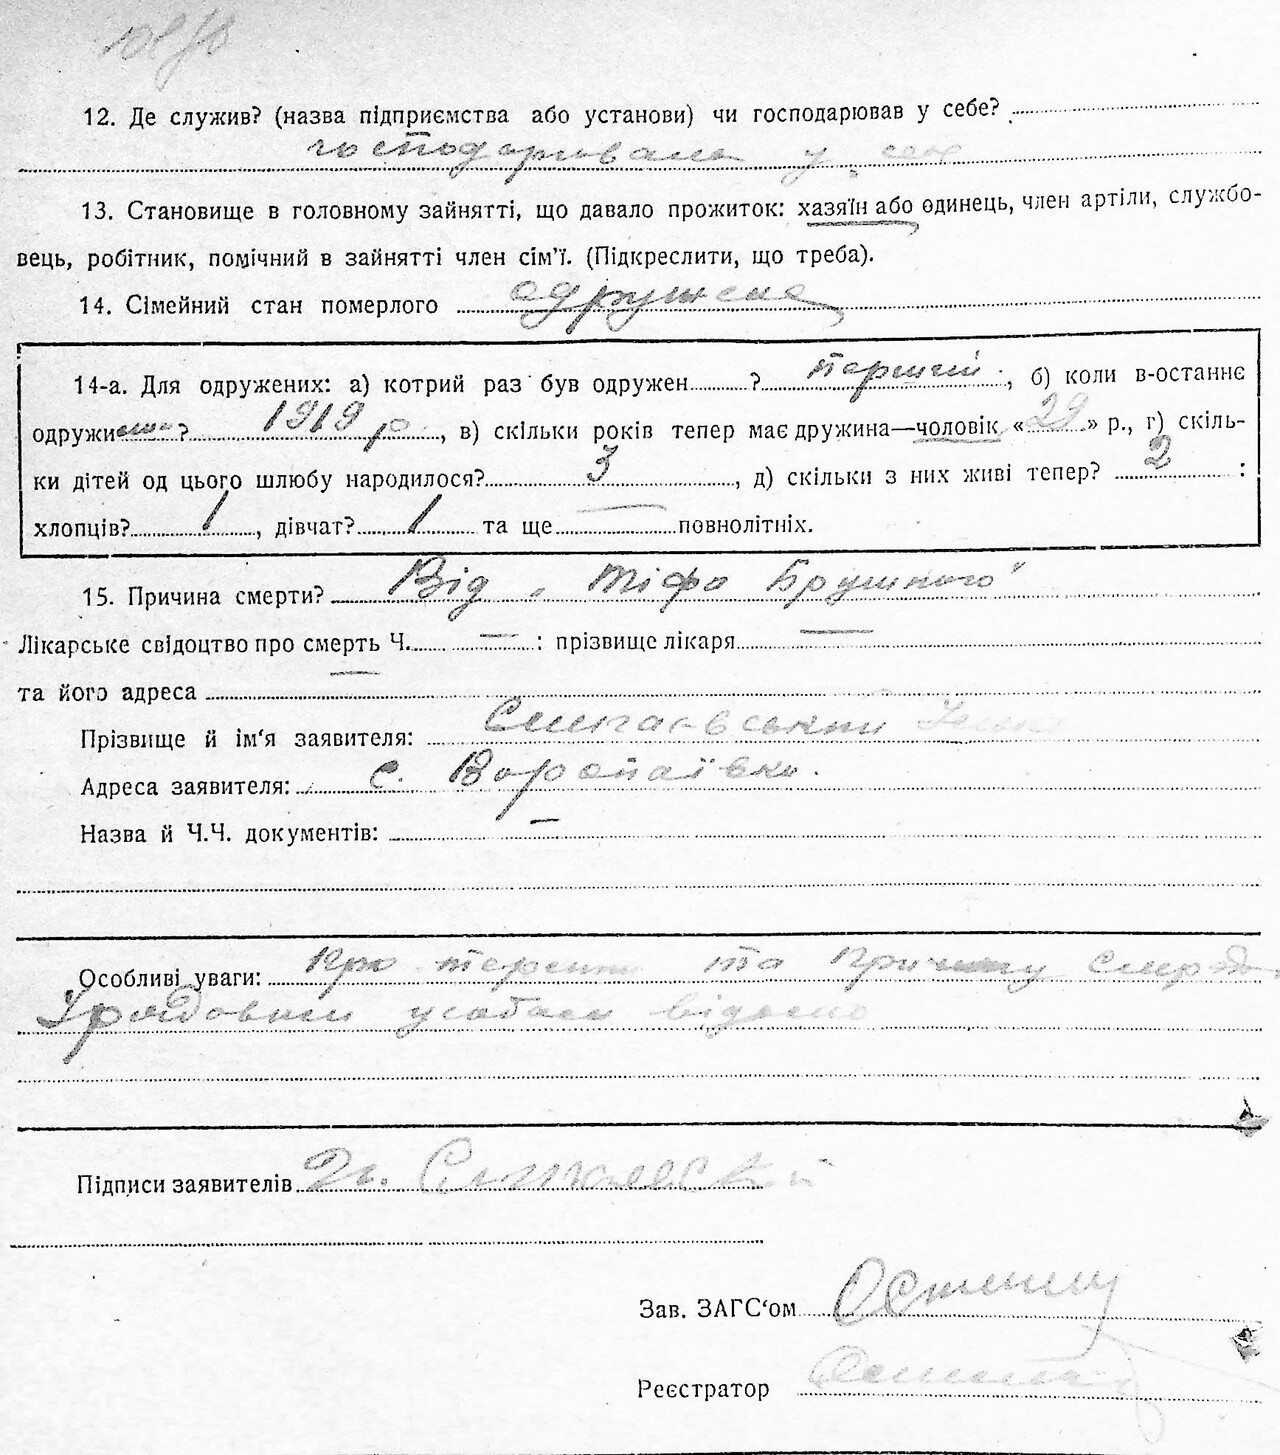 12. Де служив? (назва підприємства або установи) чи господарював у себе?
господарювала у себе
13. Становище в головному зайнятті, що давало прожиток: хазяїн або одинець, член артіли, службо-
вець, робітник, помічний в зайнятті член сім'ї. (Підкреслити, що треба).
14. Сімейний стан померлого одружена
14-а. Для одружених: а) котрий раз був одружен ? перший, б) коли в-останнє
одружи ? 1919 р., в) скільки років тепер має дружина—чоловік «29» р., г) скіль-
ки дітей од цього шлюбу народилося? 3, д) скільки з них живі тепер? 2 :
хлопців? 1, дівчат? 1 та ще — повнолітніх.
15. Причина смерти? Від „Тіфа Брушного"
Лікарське свідоцтво про смерть Ч. — : прізвище лікаря —
та його адреса —
Прізвище й ім'я заявителя:
Адреса заявителя: с. Воропаївка.
Назва й Ч.Ч. документів: —
Особливі уваги: Про термін та причину смерти
Урядовим особам відомо
Підписи заявителів
Зав. ЗАГС'ом
Реєстратор